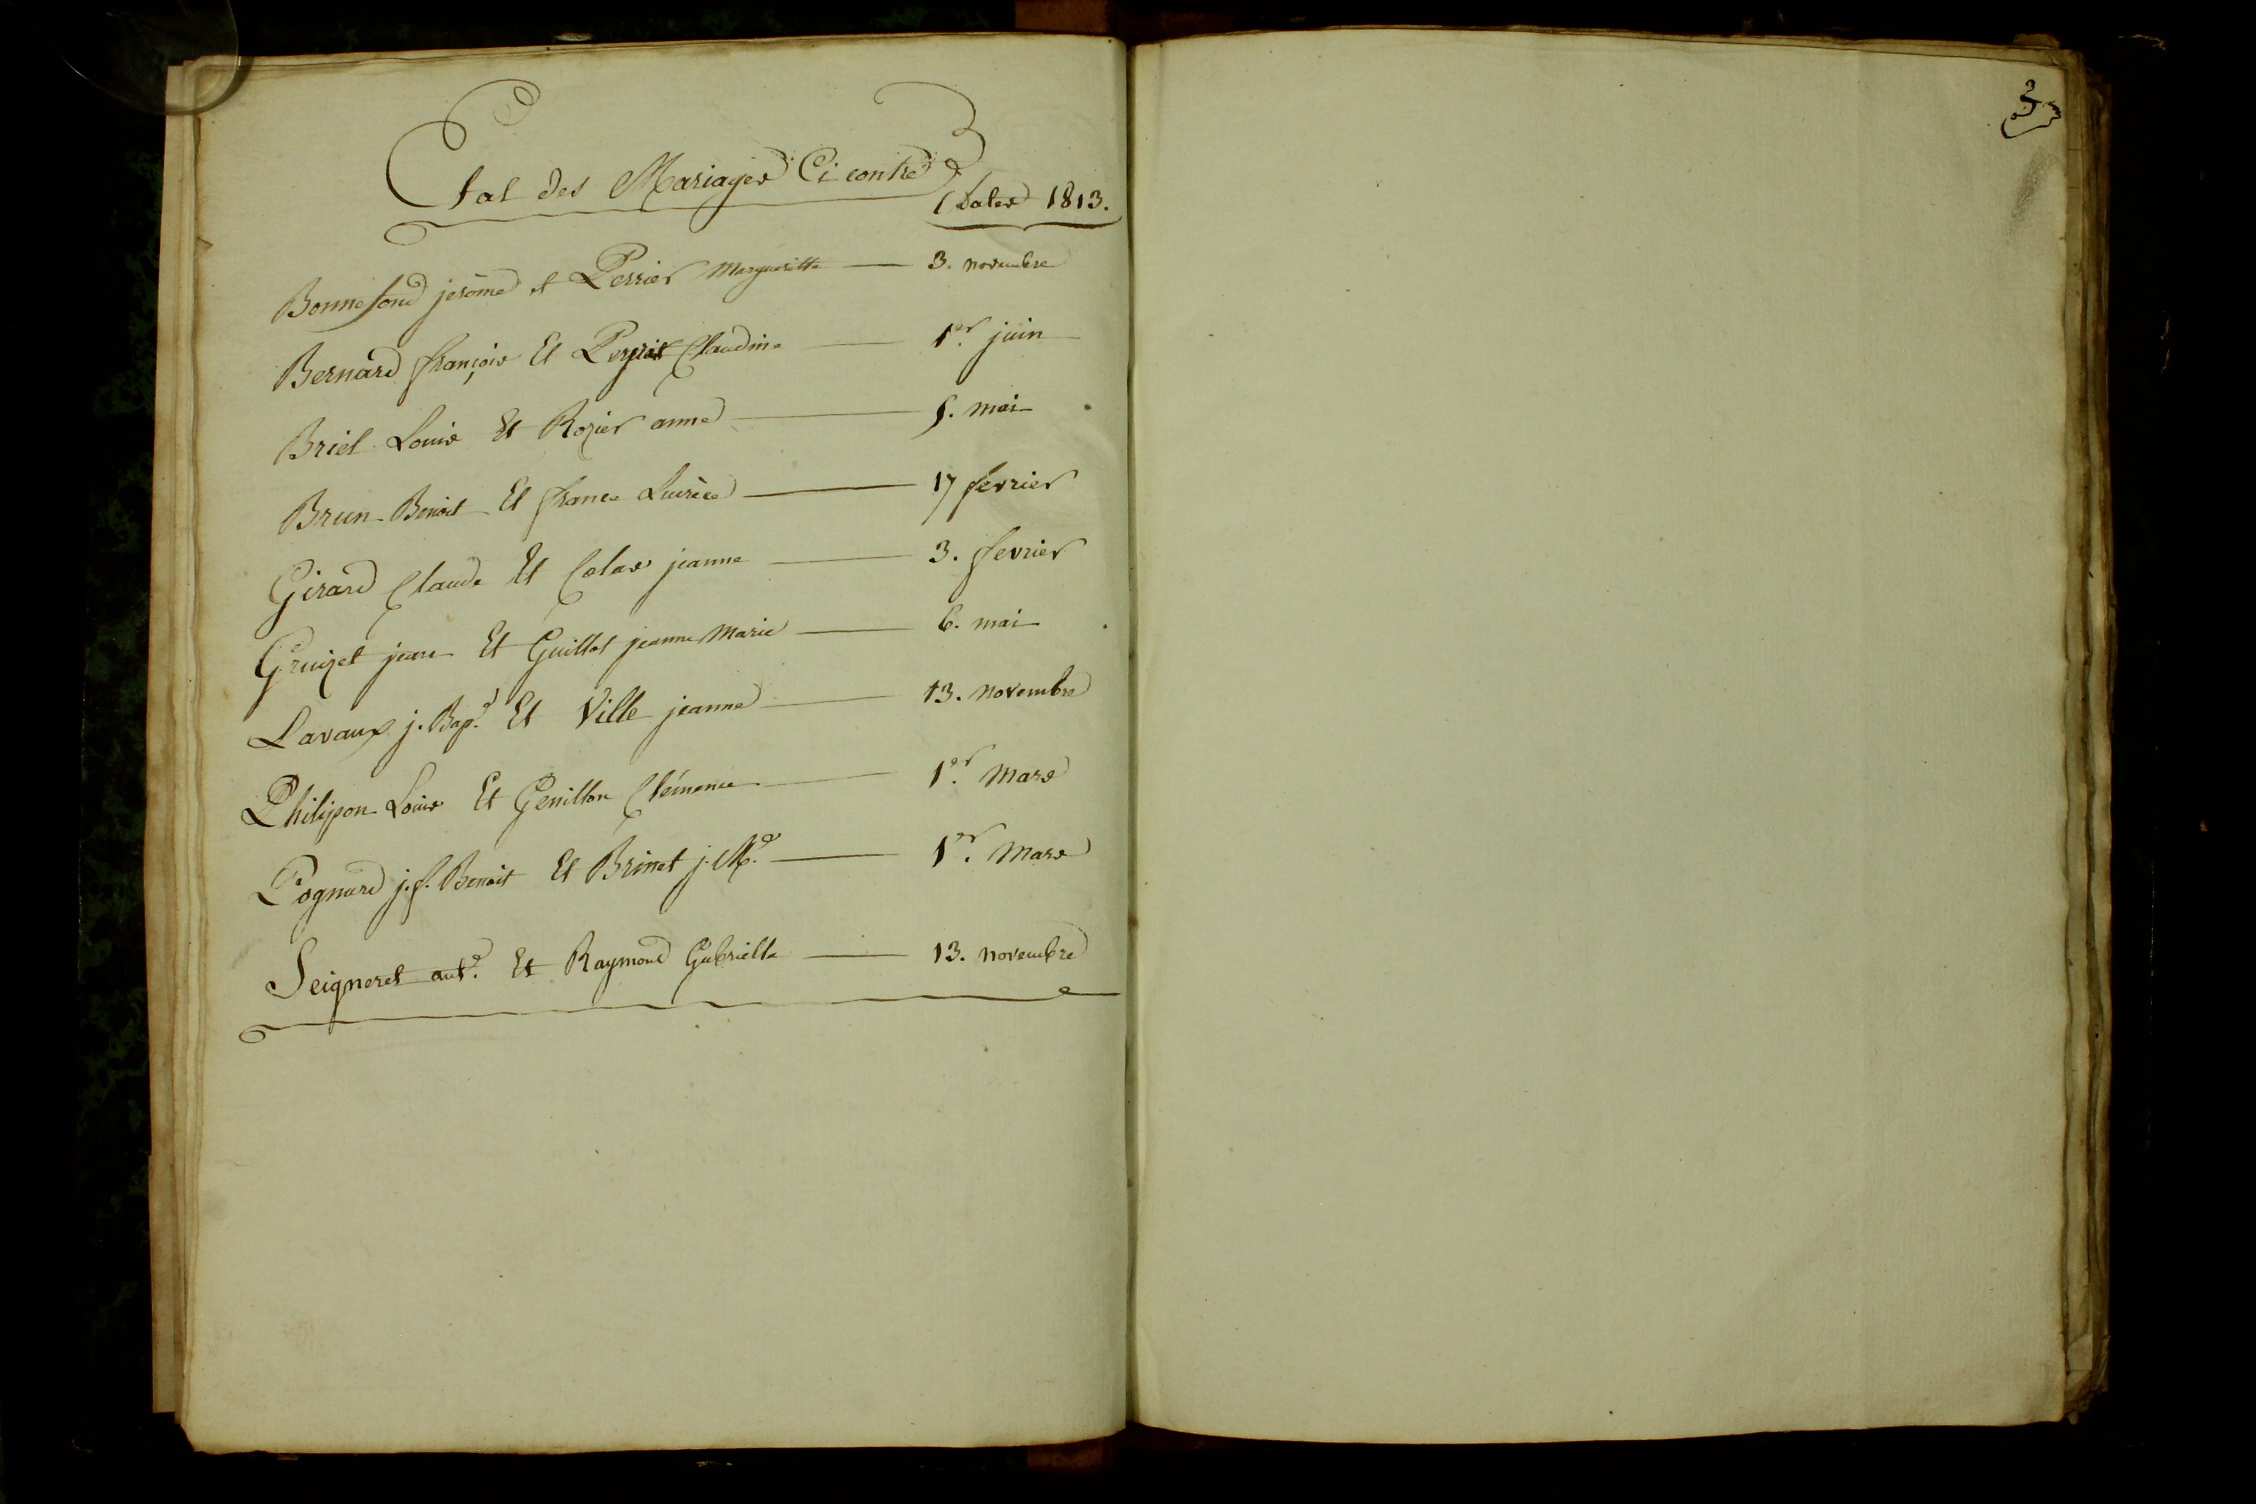 Etat des Mariages Ci contre
Dates 1813.
Bonnefond jerôme et Perrier Margueritte — 3. novembre
Bernard françois Et Claudine — 1er juin
Briel Louis Et Rozier anne — 5. mai
Brun Benoit Et france Lucrèce — 17 fevrier
Girard Claude Et Colas jeanne — 3. fevrier
Gruizet jean Et Guillot jeanne Marie — 6. mai
Lavaux j. Bapte Et Ville jeanne — 13. novembre
Philipon Louis Et Genillon Clémence — 1er Mars
Pognard j. f. Benoit Et Brinet j. Me — 1er Mars
Seigneret ante Et Raymond Gabrielle — 13. novembre
3